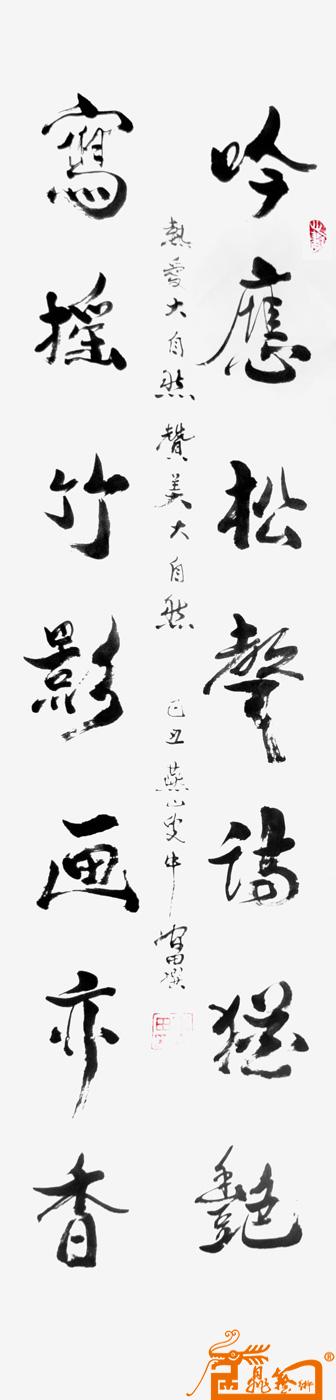 吟應松聲詩猶艷
熱愛大自然 贊美大自然 己丑 燕山叟牛 撰
寫搖竹影画亦香